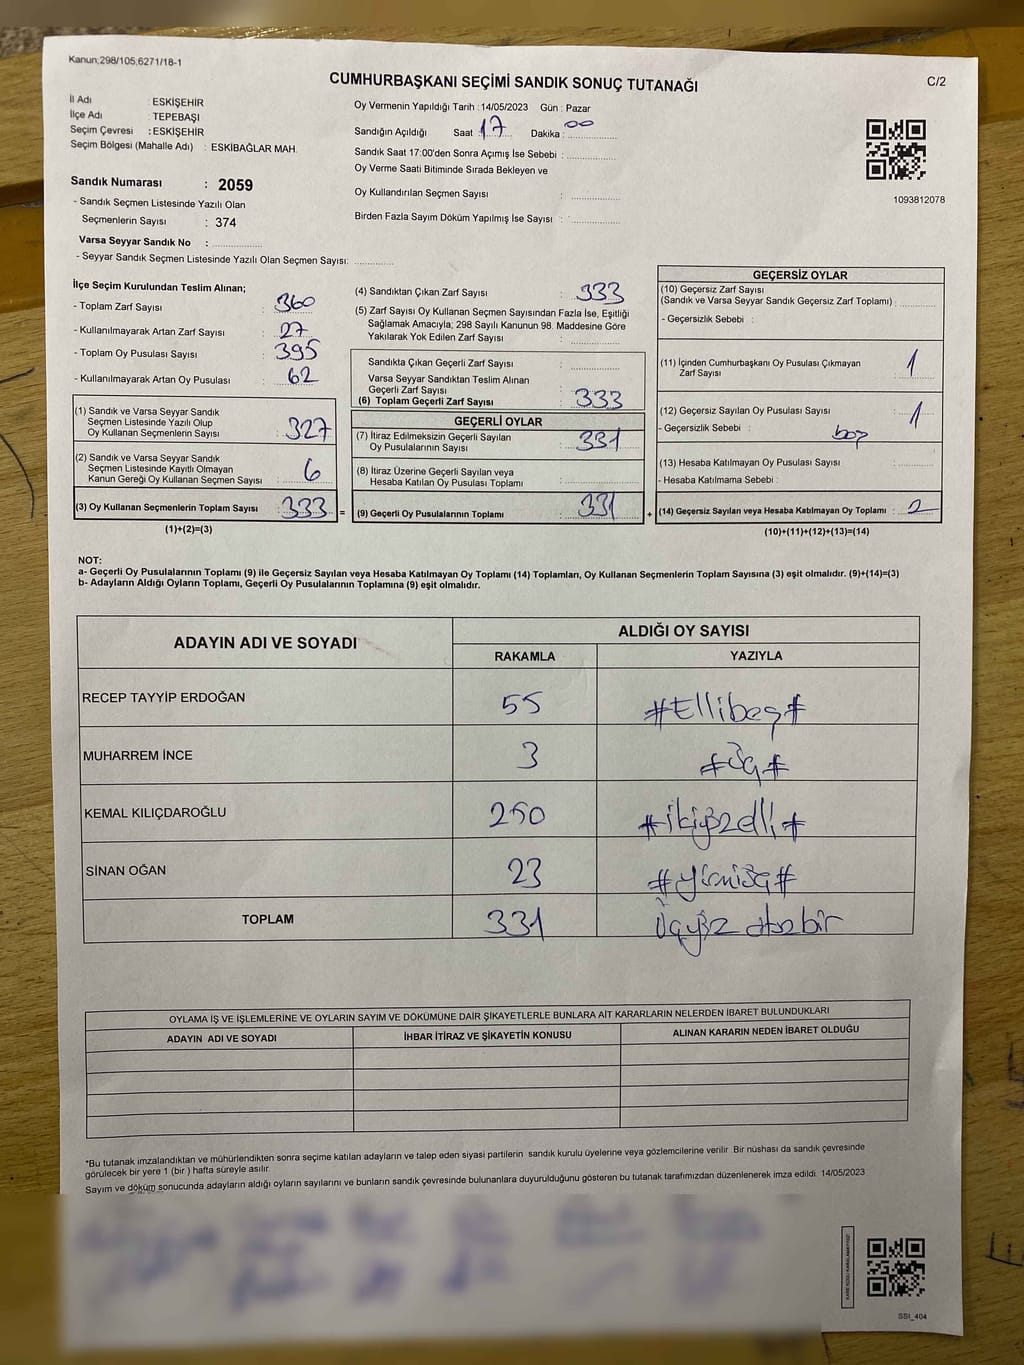 Kanun;298/105;6271/18-1
CUMHURBAŞKANI SEÇİMİ SANDIK SONUÇ TUTANAĞI
C/2
İl Adı : ESKİŞEHİR
İlçe Adı : TEPEBAŞI
Seçim Çevresi : ESKİŞEHİR
Seçim Bölgesi (Mahalle Adı) : ESKİBAĞLAR MAH.
Sandık Numarası : 2059
- Sandık Seçmen Listesinde Yazılı Olan
Seçmenlerin Sayısı : 374
Varsa Seyyar Sandık No :
- Seyyar Sandık Seçmen Listesinde Yazılı Olan Seçmen Sayısı:
Oy Vermenin Yapıldığı Tarih : 14/05/2023 Gün : Pazar
Sandığın Açıldığı Saat : 17 Dakika : 00
Sandık Saat 17:00'den Sonra Açımış İse Sebebi :
Oy Verme Saati Bitiminde Sırada Bekleyen ve
Oy Kullandırılan Seçmen Sayısı :
Birden Fazla Sayım Döküm Yapılmış İse Sayısı :
1093812078
İlçe Seçim Kurulundan Teslim Alınan;
- Toplam Zarf Sayısı : 360
- Kullanılmayarak Artan Zarf Sayısı : 27
- Toplam Oy Pusulası Sayısı : 395
- Kullanılmayarak Artan Oy Pusulası : 62
(1) Sandık ve Varsa Seyyar Sandık
Seçmen Listesinde Yazılı Olup
Oy Kullanan Seçmenlerin Sayısı : 327
(2) Sandık ve Varsa Seyyar Sandık
Seçmen Listesinde Kayıtlı Olmayan
Kanun Gereği Oy Kullanan Seçmen Sayısı : 6
(3) Oy Kullanan Seçmenlerin Toplam Sayısı : 333 =
(1)+(2)=(3)
(4) Sandıktan Çıkan Zarf Sayısı : 333
(5) Zarf Sayısı Oy Kullanan Seçmen Sayısından Fazla İse, Eşitliği
Sağlamak Amacıyla; 298 Sayılı Kanunun 98. Maddesine Göre
Yakılarak Yok Edilen Zarf Sayısı :
Sandıkta Çıkan Geçerli Zarf Sayısı :
Varsa Seyyar Sandıktan Teslim Alınan
Geçerli Zarf Sayısı :
(6) Toplam Geçerli Zarf Sayısı : 333
GEÇERLİ OYLAR
(7) İtiraz Edilmeksizin Geçerli Sayılan
Oy Pusulalarının Sayısı : 331
(8) İtiraz Üzerine Geçerli Sayılan veya
Hesaba Katılan Oy Pusulası Toplamı :
(9) Geçerli Oy Pusulalarının Toplamı : 331 +
GEÇERSİZ OYLAR
(10) Geçersiz Zarf Sayısı
(Sandık ve Varsa Seyyar Sandık Geçersiz Zarf Toplamı) :
- Geçersizlik Sebebi :
(11) İçinden Cumhurbaşkanı Oy Pusulası Çıkmayan
Zarf Sayısı : 1
(12) Geçersiz Sayılan Oy Pusulası Sayısı : 1
- Geçersizlik Sebebi : boş
(13) Hesaba Katılmayan Oy Pusulası Sayısı :
- Hesaba Katılmama Sebebi :
(14) Geçersiz Sayılan veya Hesaba Katılmayan Oy Toplamı : 2
(10)+(11)+(12)+(13)=(14)
NOT:
a- Geçerli Oy Pusulalarının Toplamı (9) ile Geçersiz Sayılan veya Hesaba Katılmayan Oy Toplamı (14) Toplamları, Oy Kullanan Seçmenlerin Toplam Sayısına (3) eşit olmalıdır. (9)+(14)=(3)
b- Adayların Aldığı Oyların Toplamı, Geçerli Oy Pusulalarının Toplamına (9) eşit olmalıdır.
ADAYIN ADI VE SOYADI
ALDIĞI OY SAYISI
RAKAMLA YAZIYLA
RECEP TAYYİP ERDOĞAN 55 #Ellibeş#
MUHARREM İNCE 3 #Üç#
KEMAL KILIÇDAROĞLU 250 #ikiyüzelli#
SİNAN OĞAN 23 #yirmiüç#
TOPLAM 331 Üçyüz otuzbir
OYLAMA İŞ VE İŞLEMLERİNE VE OYLARIN SAYIM VE DÖKÜMÜNE DAİR ŞİKAYETLERLE BUNLARA AİT KARARLARIN NELERDEN İBARET BULUNDUKLARI
ADAYIN ADI VE SOYADI İHBAR İTİRAZ VE ŞİKAYETİN KONUSU ALINAN KARARIN NEDEN İBARET OLDUĞU
*Bu tutanak imzalandıktan ve mühürlendikten sonra seçime katılan adayların ve talep eden siyasi partilerin sandık kurulu üyelerine veya gözlemcilerine verilir. Bir nüshası da sandık çevresinde
görülecek bir yere 1 (bir ) hafta süreyle asılır.
Sayım ve döküm sonucunda adayların aldığı oyların sayılarını ve bunların sandık çevresinde bulunanlara duyurulduğunu gösteren bu tutanak tarafımızdan düzenlenerek imza edildi. 14/05/2023
KARE KODU KARALAMAYINIZ!
SSI_404